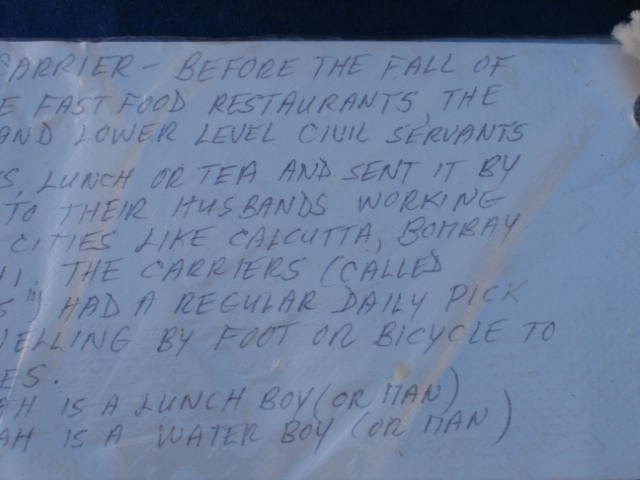 CARRIER - BEFORE THE FALL OF
E FAST FOOD RESTAURANTS, THE
AND LOWER LEVEL CIVIL SERVANTS
S, LUNCH OR TEA AND SENT IT BY
TO THEIR HUSBANDS WORKING
CITIES LIKE CALCUTTA, BOMBAY
HI. THE CARRIERS (CALLED
S") HAD A REGULAR DAILY PICK
VELLING BY FOOT OR BICYCLE TO
ES.
H IS A LUNCH BOY (OR MAN)
AH IS A WATER BOY (OR MAN)